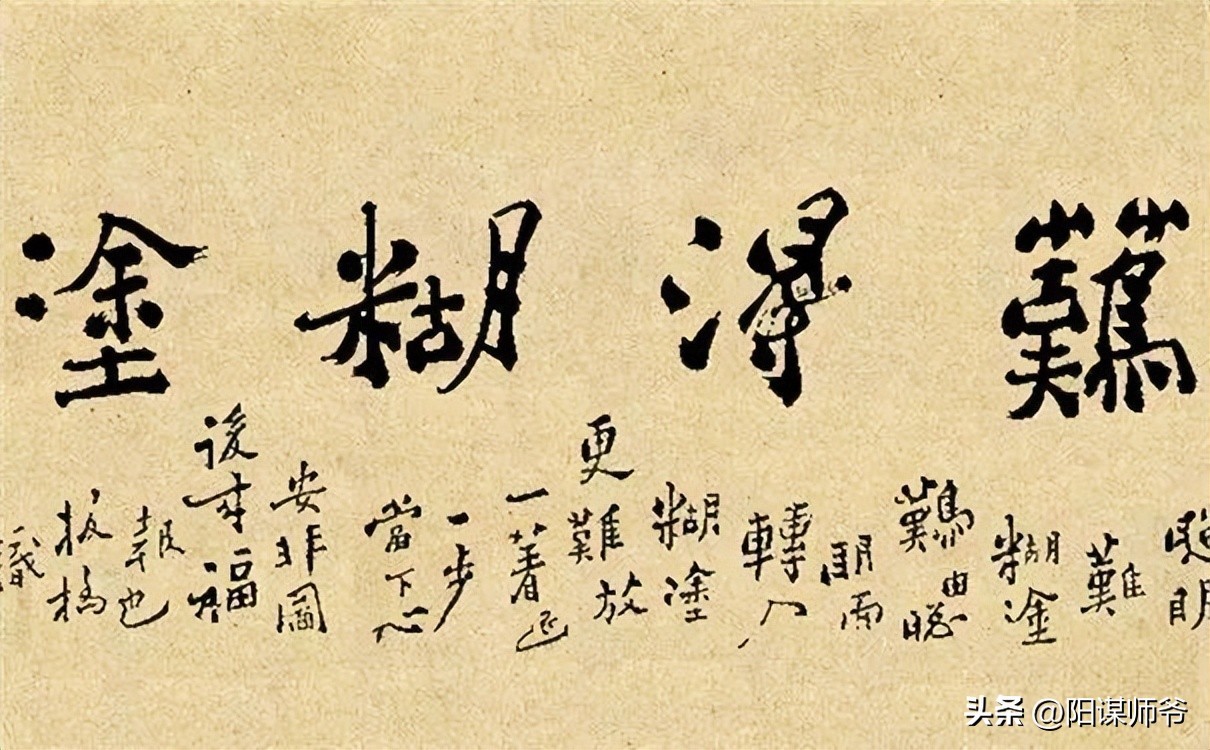 難得糊塗
聰明
難
糊塗
難由聰
明而
轉入
糊塗
更難放
一著退
一步
當下心
安非圖
後來福
報也
板橋
頭条 @阳谋师爷